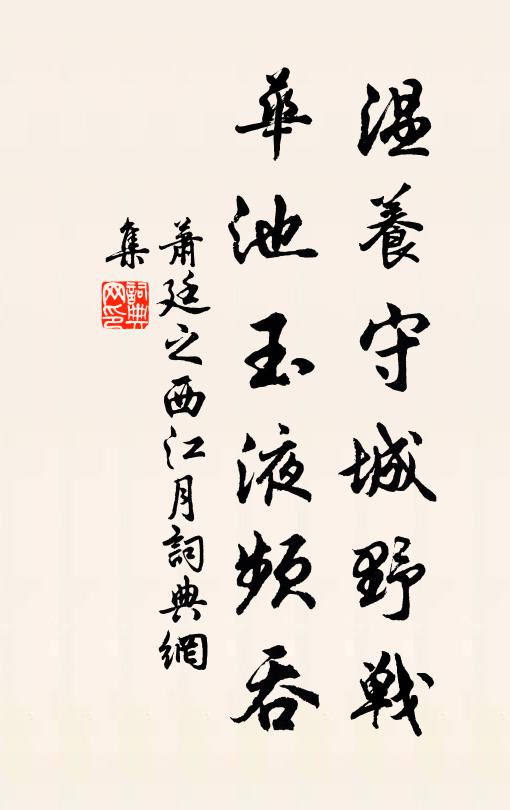 温養守城野戰
華池玉液頻吞
蕭廷之西江月詞典網
集
詞典網印